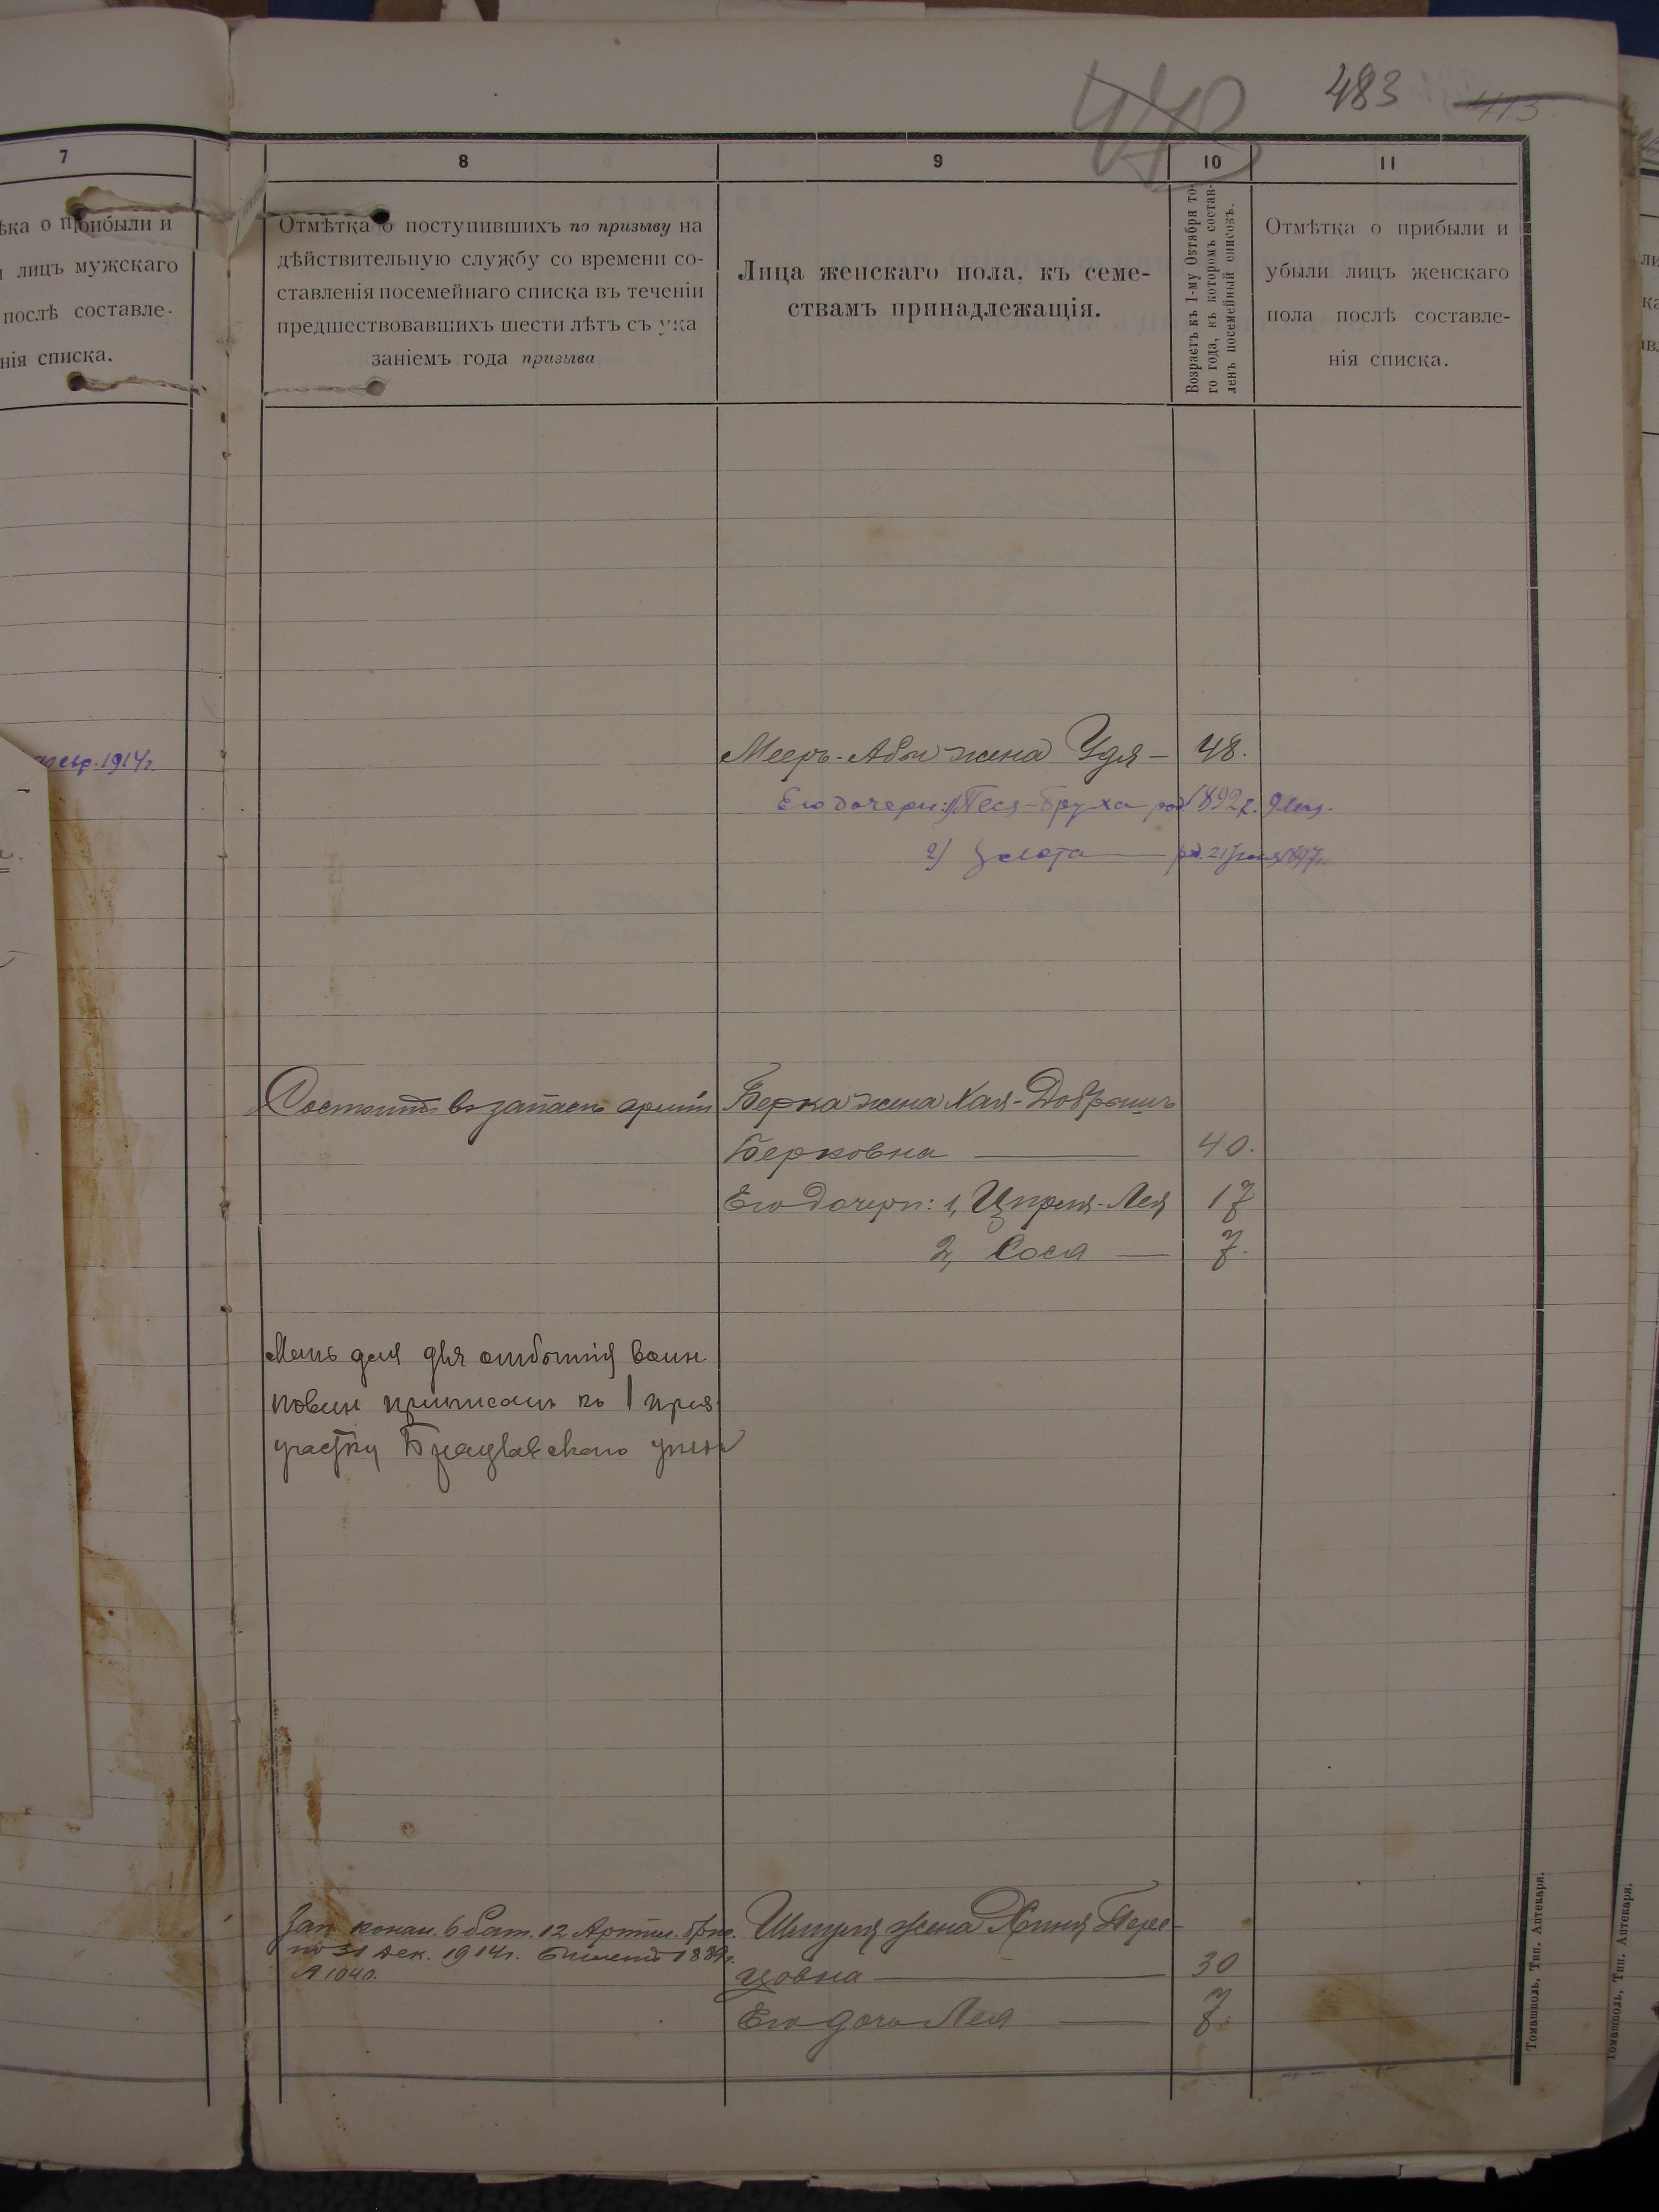 483 413
478
7
8
9
10
11
ѣка о прибыли и
и лицъ мужскаго
послѣ составле-
нія списка.
Отмѣтка о поступившихъ по призыву на
дѣйствительную службу со времени со-
ставленія посемейнаго списка въ теченіи
предшествовавшихъ шести лѣтъ съ ука
заніемъ года призыва
Лица женскаго пола, къ семе-
ствамъ принадлежащія.
Возрастъ къ 1-му Октября то-
го года, въ которомъ состав-
ленъ посемейный списокъ.
Отмѣтка о прибыли и
убыли лицъ женскаго
пола послѣ составле-
нія списка.
1914г.
Мееръ-Абы жена Удя — 48.
Его дочери: 1) Песя-Бруха род. 1892 г.
2) Злота — р. 21 1897г.
Состоитъ въ запасѣ арміи
Берка жена Хая-
Берковна — 40.
Его дочери: 1, Лея 17
2, Сося — 7.
для отбытія воин
повин приписанъ къ 1 приз
участку Брацлавскаго уѣзда
Зап. 6 бат. 12 Артил. бриг.
по 31 дек. 1914г. 1889г.
1040.
Шмуля жена Хиня Пере-
цовна — 30
Его дочь Лея — 7.
Томашполь, Тип. Аптекаря.
Томашполь, Тип. Аптекаря.